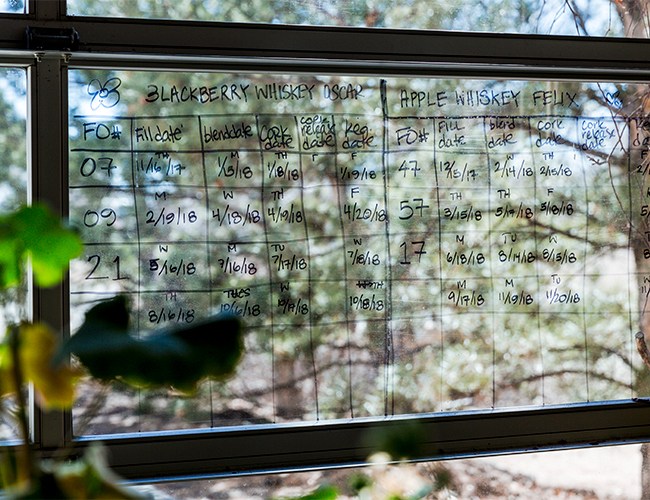 BLACKBERRY WHISKEY OSCAR
FO# Fill date blend date Cork date cork release date Keg date
07 TH 11/16/17 M TH 1/18/18 F F 1/19/18
09 M 2/19/18 W 4/18/18 TH 4/19/18 F 4/20/18
21 W 5/16/18 M 7/16/18 TU 7/17/18 W 7/18/18
TH 8/16/18 TUES W
APPLE WHISKEY FELIX
FO# Fill date blend date cork date cork release date
47 T W 2/14/18 TH 2/15/18
57 TH 3/15/18 TH F
17 M 6/18/18 TU 8/14/18 W 8/15/18
M 9/17/18 M 11/19/18 TU 11/20/18